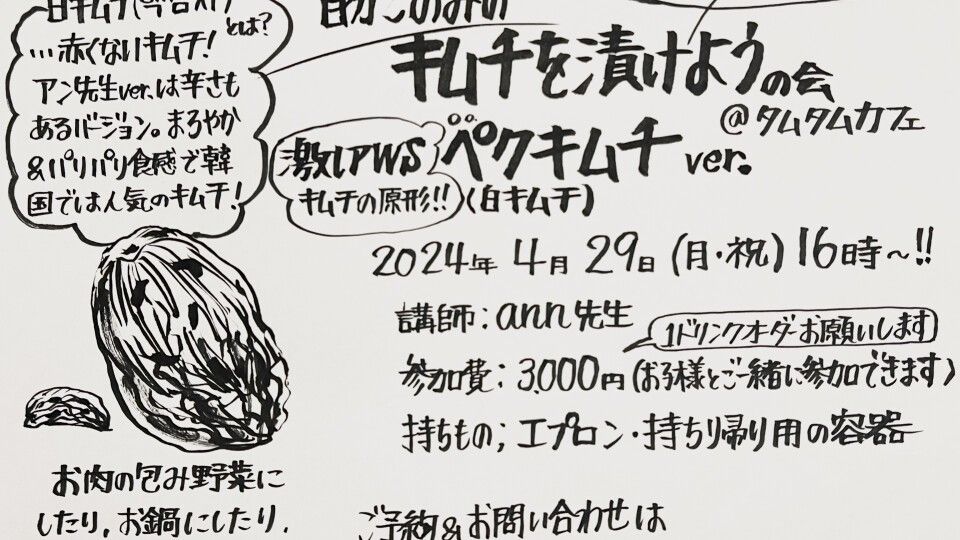 白キムチ(今回のは)とは?
…赤くないキムチ!
アン先生ver.は辛さも
あるバージョン。まろやか
&パリパリ食感で韓
国では人気のキムチ!
自分ごのみの
キムチを漬けようの会
@タムタムカフェ
ペクキムチ ver.
キムチの原形!!
(白キムチ)
2024年 4月 29日 (月・祝) 16時〜!!
講師:ann先生
1ドリンクオーダーお願いします
参加費:3,000円(お子様とご一緒に参加できます)
持ちもの;エプロン・持ち帰り用の容器
お肉の包み野菜に
したり、お鍋にしたり、
ご予約&お問い合わせは